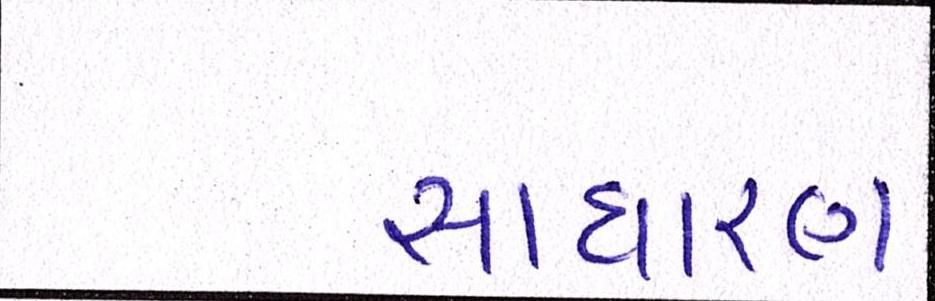 સાધારણ